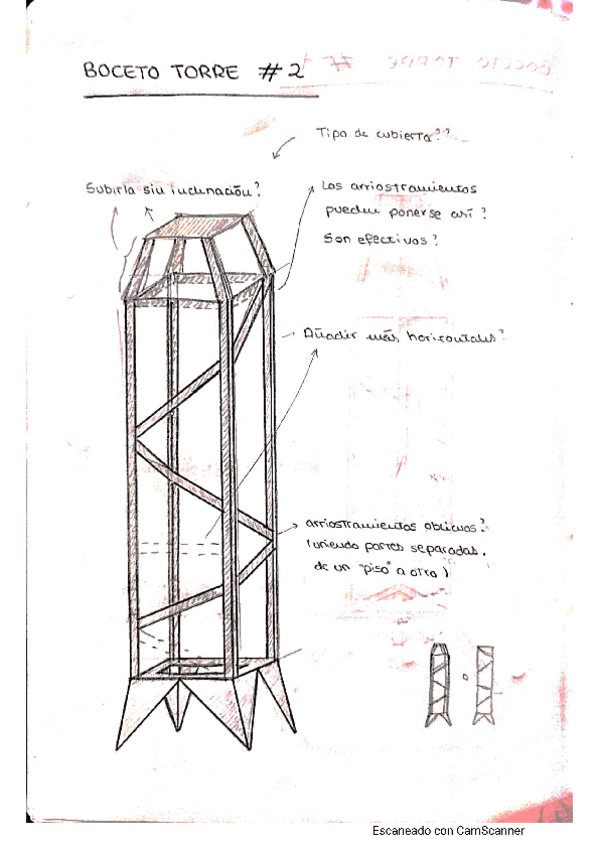 BOCETO TORRE #2
Tipo de cubierta??
Subirla sin inclinación?
Los arriostramientos
pueden ponerse así?
Son efectivos?
Añadir más horizontales?
arriostramientos oblicuos?
(uniendo partes separadas.
de un "piso" a otro)
o
Escaneado con CamScanner